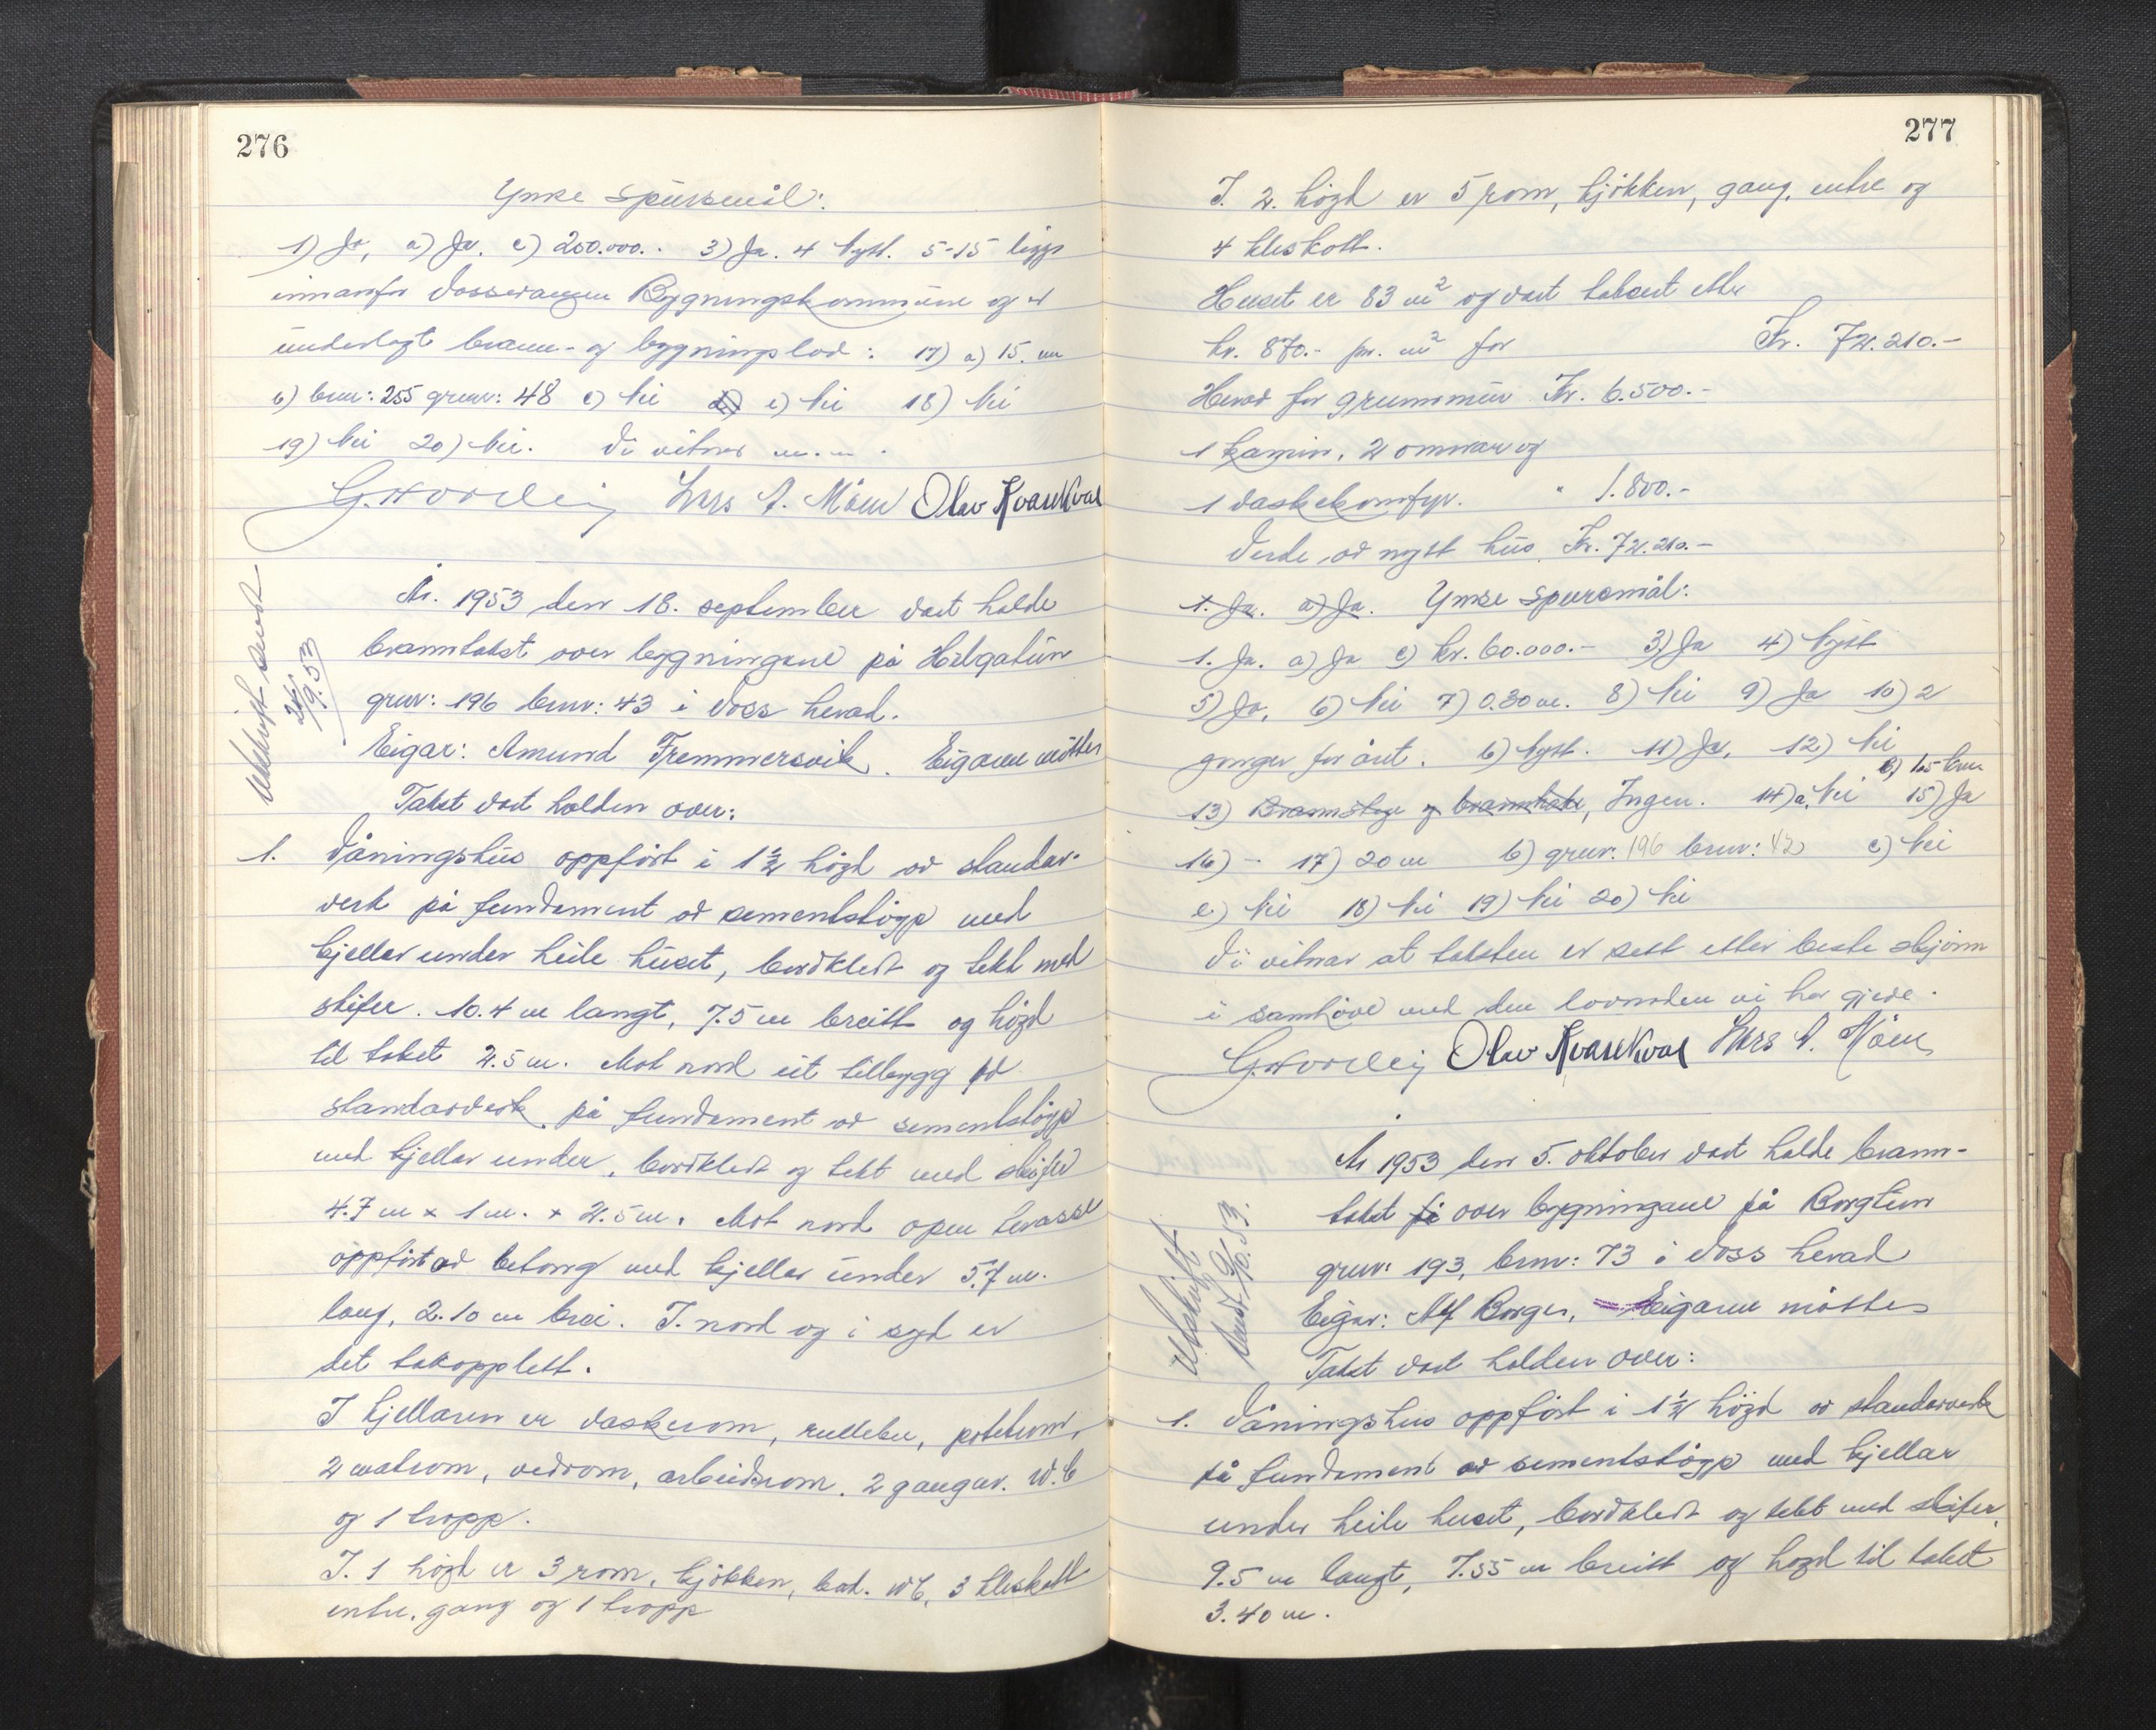 276
Ymse spursmål:
1) Ja, a) Ja. c) 200.000.- 3) Ja. 4 Nytt. 5-15 ligg
innanfor Vossevangen Bygningskommune og
underlagt brann- og bygningslov: 17) a) 15. m
b) bnr: 255 grnr: 48 c) Nei e) Nei 18) Nei
19) Nei 20) Nei. Vi vitnar m.m.
Lars A. Møen Olav Kvarekval
Utskrift sendt
24/9.53
År. 1953 den 18. september vart halde
branntakst over bygningane på Helgatun
grnr: 196 bnr: 43 i Voss herad.
Eigar: Amund Fremmersvik. Eigaren møtte
Takst vart halden over:
1. Våningshus oppført i 1 1/2 høgd av standar-
verk på fundament av sementstøyp med
kjellar under heile huset, bordkledt og tekt med
skifer. 10.4 m langt, 7.5 m breitt og høgd
til taket 4.5 m. Mot nord eit tilbygg av
standarverk på fundament av sementstøyp
med kjellar under, bordkledt og tekt med skifer
4.7 m x 1 m. x 2.5 m. Mot nord open terasse
oppført av betong med kjellar under 5.7 m.
lang, 2.10 m brei. I nord og i syd er
det takopplett.
I kjellaren er vaskerom, rullebu, potetrom,
2 matrom, vedrom, arbeidsrom, 2 gangar. W.C
og 1 tropp.
I. 1 høgd er 3 rom, kjøkken, bad. WC, 3 kleskott
entre, gang og 1 tropp
277
I. 2. høgd er 5 rom, kjøkken, gang, entre og
4 kleskott.
Huset er 83 m2 og vart taksert etter
kr. 870.- pr. m2 for Kr. 72.210.-
Herav for grunnmur Kr. 6.500.-
1 kamin, 2 omnar og
1 vaskekomfyr. " 1.800.-
Verde av nytt hus Kr. 72.210.-
1. Ja. a) Ja. Ymse spursmål:
1. Ja. a) Ja c) kr. 60.000.- 3) Ja 4) Nytt
5) Ja, 6) Nei 7) 0.30 m. 8) Nei 9) Ja 10) 2
gonger for året. b) Nytt. 11) Ja, 12) Nei
13) Brannstige og brannhake, Ingen. 14) a. Nei b) 1 a 5 brm 15) Ja
16) - 17) 20 m b) grnr: 196 bnr: 42 c) Nei
e) Nei 18) Nei 19) Nei 20) Nei
Vi vitnar at taksten er sett etter beste skjønn
i samhøve med den lovnaden vi har gjeve.
Olav Kvarekval Lars A. Møen
Utskrift
sendt 9/10.53.
År 1953 den 5. oktober vart halde brann-
takst på over bygningane på Borgtun
grnr: 193, bnr: 73 i Voss herad
Eigar: Alf Borge, Eigaren møtte
Takst vart halden over:
1. Våningshus oppført i 1 1/2 høgd av standarverk
på fundament av sementstøyp med kjellar
under heile huset, bordkledt og tekt med skifer.
9.5 m langt, 7.55 m breitt og høgd til taket
3.40 m.